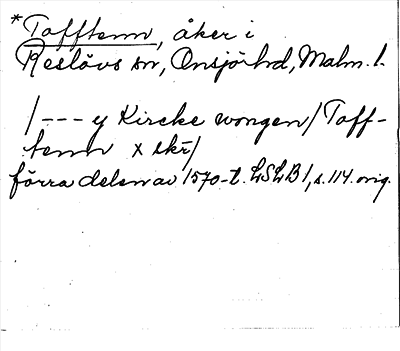 *Tofftenn, åker i
Reslövs sn, Onsjö hd, Malm. l.
/--- y Kircke wongen/ Toff-
tenn x skr/
förra delen av 1570-t. LSLB 1, s. 114. orig.